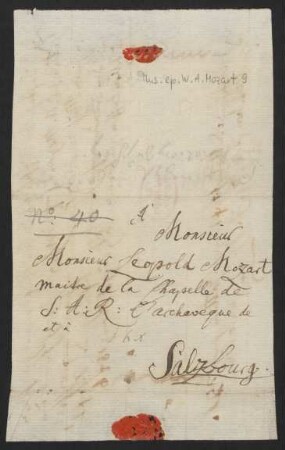 Mus. ep. W. A. Mozart 9
No: 40
A Monsieur
Monsieur Leopold Mozart
maitre de la Chapelle de
S: A: R: L'archeveque de
et à
Salzbourg.